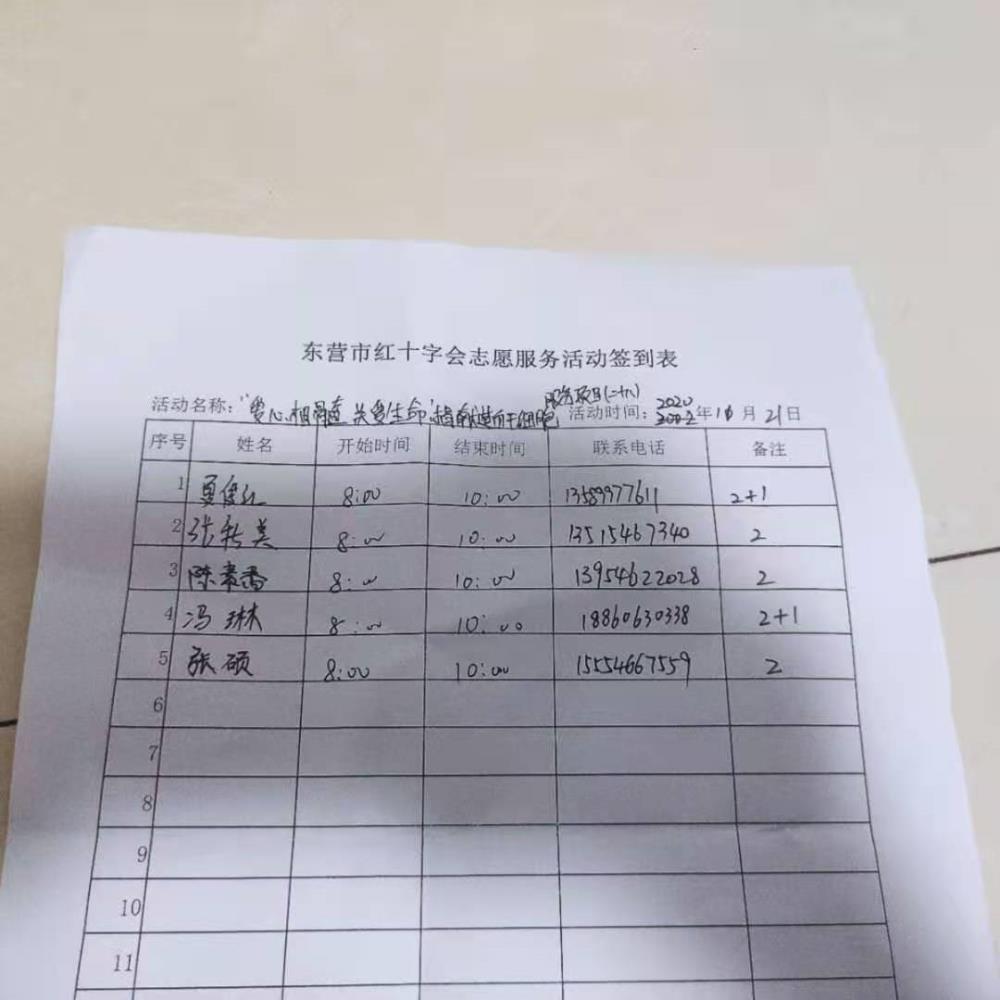 东营市红十字会志愿服务活动签到表
服务项目(二十八)
活动名称："爱心相髓 关爱生命"捐献造血干细胞 活动时间：2020年10月21日
序号 姓名 开始时间 结束时间 联系电话 备注
1 8:00 10:00 13589977611 2+1
2 张秋美 8:00 10:00 13515467340 2
3 陈素香 8:00 10:00 13954622028 2
4 冯琳 8:00 10:00 18860630338 2+1
5 张硕 8:00 10:00 15554667559 2
6
7
8
9
10
11